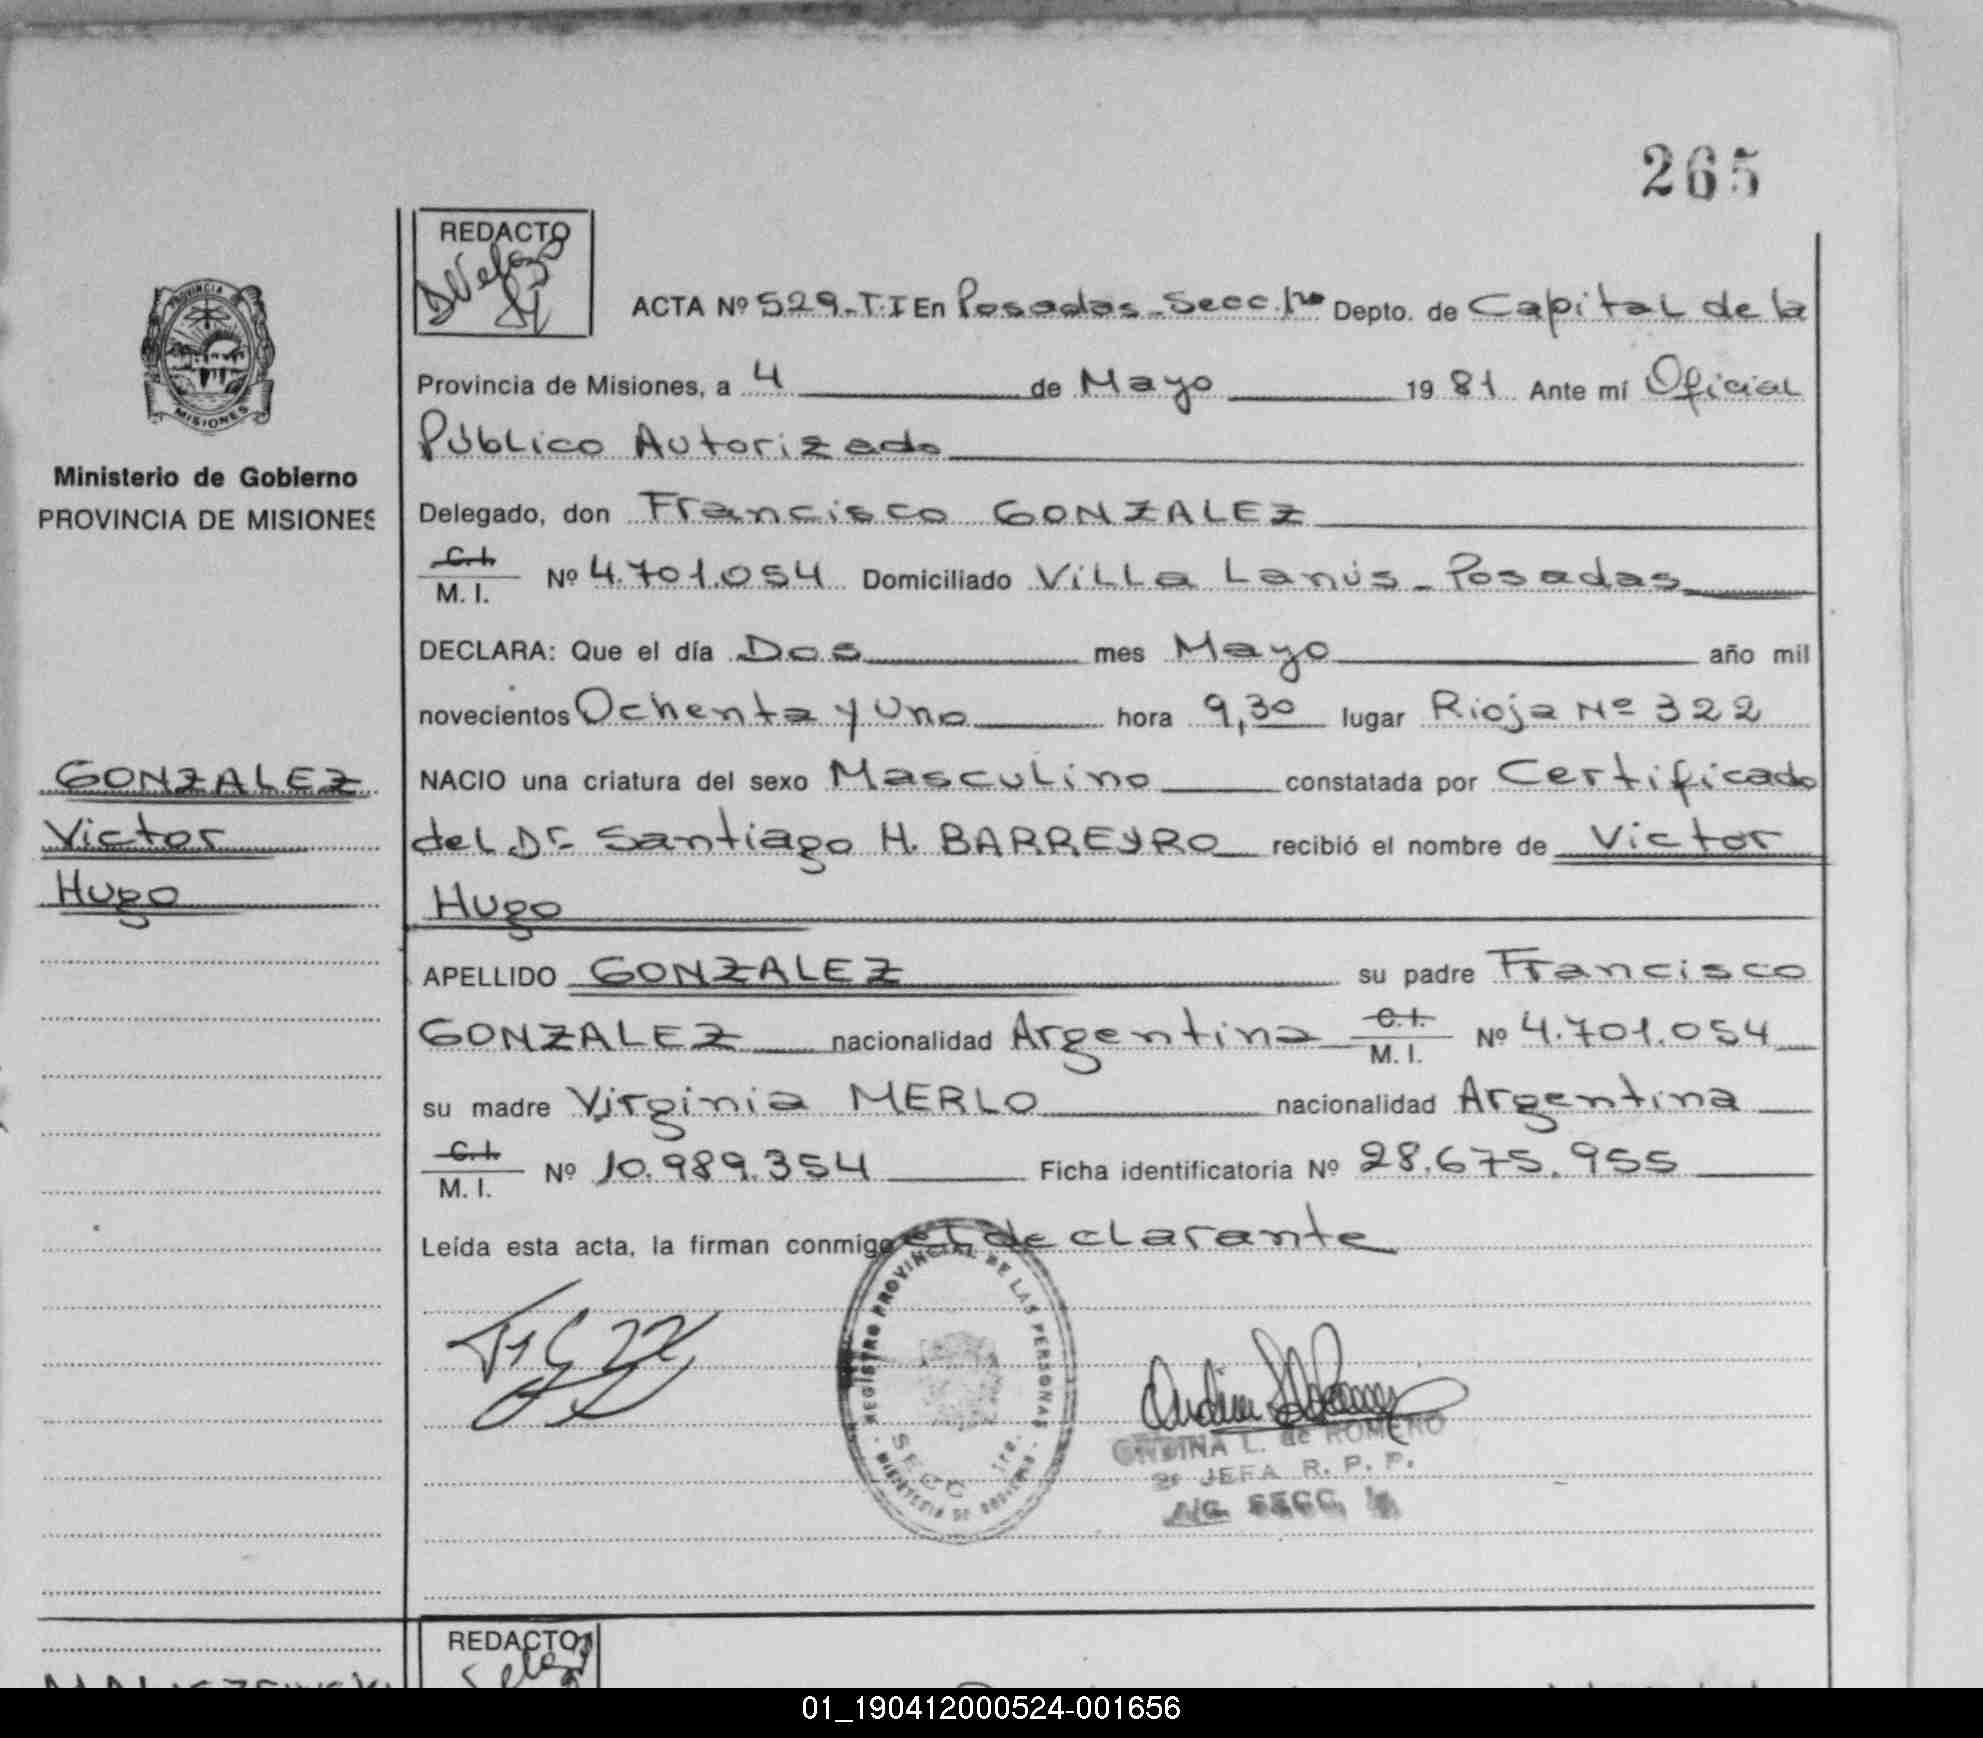 265
REDACTO
ACTA Nº 529-T.I En Posadas-Secc. 1ra Depto. de Capital de la
Provincia de Misiones, a 4 de Mayo 1981 Ante mí Oficial
Público Autorizado
Delegado, don Francisco GONZALEZ
C.I. / M. I. Nº 4.701.054 Domiciliado Villa Lanús - Posadas
DECLARA: Que el día Dos mes Mayo año mil
novecientos Ochenta y Uno hora 9,30 lugar Rioja Nº 322
NACIO una criatura del sexo Masculino constatada por Certificado
del Dr. Santiago H. BARREYRO recibió el nombre de Victor
Hugo
APELLIDO GONZALEZ su padre Francisco
GONZALEZ nacionalidad Argentina C.I. / M. I. Nº 4.701.054
su madre Virginia MERLO nacionalidad Argentina
C.I. / M. I. Nº 10.989.354 Ficha identificatoria Nº 28.675.955
Leída esta acta, la firman conmigo el declarante
PROVINCIA
MISIONES
Ministerio de Gobierno
PROVINCIA DE MISIONES
GONZALEZ
Victor
Hugo
REGISTRO PROVINCIAL DE LAS PERSONAS
SECC 1ra.
MINISTERIO DE GOBIERNO
ONDINA L. de ROMERO
2º JEFA R. P. P.
A/C. SECC. 1ª
REDACTO
01_190412000524-001656